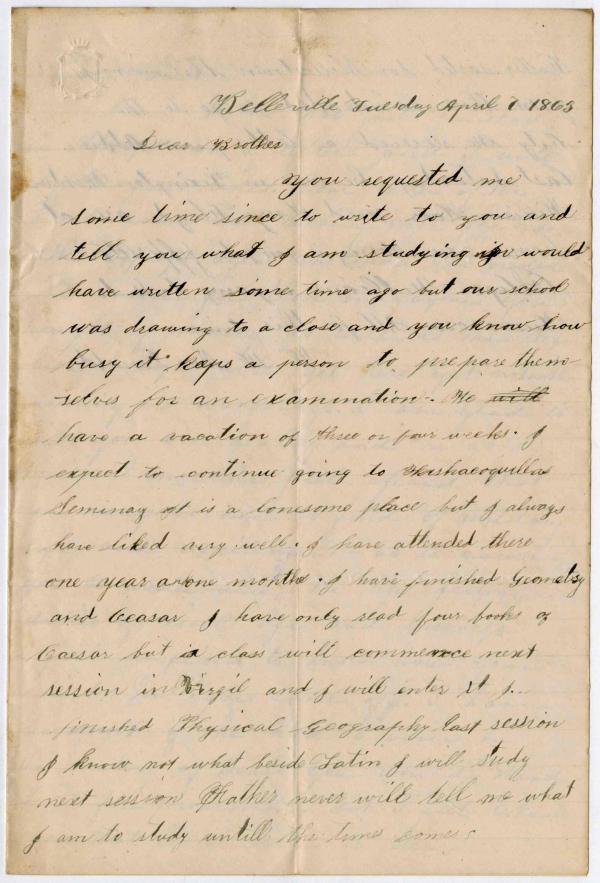 Belleville Tuesday April 7 1863
Dear Brother
You requested me
some time since to write to you and
tell you what I am studying I would
have written some time ago but our school
was drawing to a close and you know how
busy it keeps a person to prepare them-
selves for an examination. We will
have a vacation of three or four weeks. I
expect to continue going to Kishacoquillas
Seminay It is a lonesome place but I always
have liked very well. I have attended there
one year and one months. I have finished Geometry
and Ceasar I have only read four books of
Caesar but a class will commence next
session in Virgil and I will enter it I
finished Physical Geography last session
I know not what beside Latin I will study
next session Father never will tell me what
I am to study untill the time comes